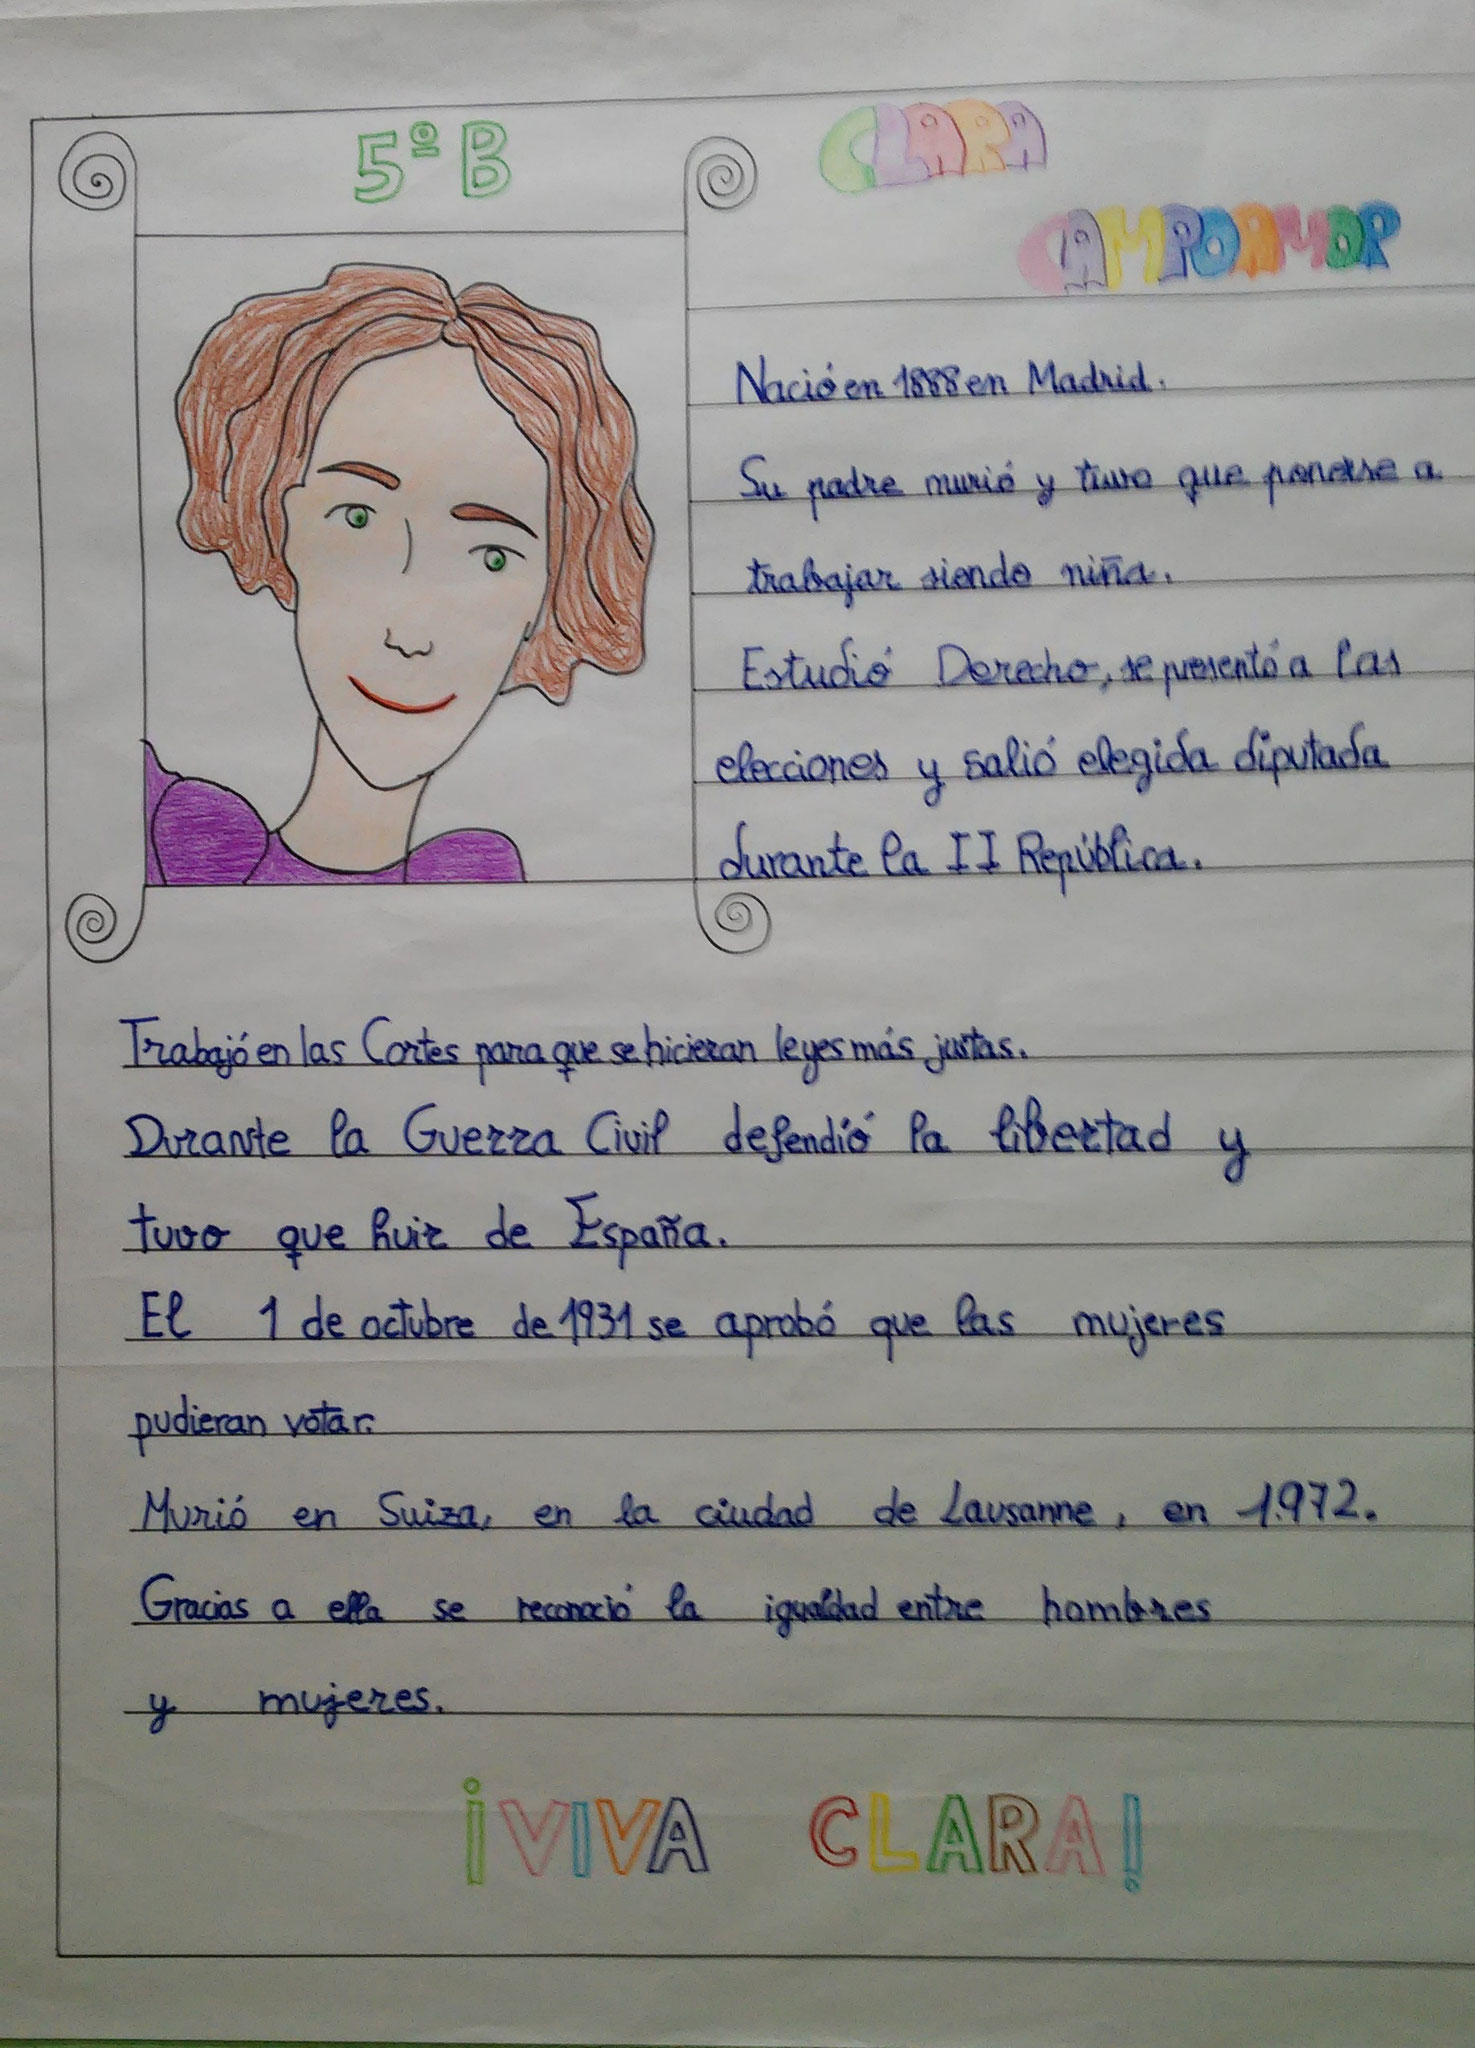 5º B
CLARA
CAMPOAMOR
Nació en 1888 en Madrid.
Su padre murió y tuvo que ponerse a
trabajar siendo niña.
Estudió Derecho, se presentó a las
elecciones y salió elegida diputada
durante la II República.
Trabajó en las Cortes para que se hicieran leyes más justas.
Durante la Guerra Civil defendió la libertad y
tuvo que huir de España.
El 1 de octubre de 1931 se aprobó que las mujeres
pudieran votar.
Murió en Suiza, en la ciudad de Lausanne, en 1.972.
Gracias a ella se reconoció la igualdad entre hombres
y mujeres.
¡VIVA CLARA!